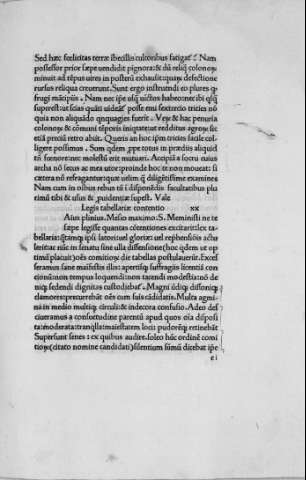 Sed hæc fœlicitas terræ ibecillis cultoribus fatigat̄. Nam
possessor prior sæpe uendidit pignora: & dū reliq̄ colonoꝝ
minuit ad tēpus uires in posterū exhausit: quaꝝ defectione
rursus reliqua creuerunt. Sunt ergo instruendi eo plures q
frugi mācipiis. Nam nec ipe usq̄ uictos habeo: nec ibi q̄sq̄
supereſt: ut scias quāti uideāt̄ posse emi sextertio tricies nō
quia non aliquādo q̄nquagies fuerit. Veꝝ & hac penuria
colonoꝝ & cōmuni tēporis iniquitate ut redditus agroꝝ: sic
etiā preciū retro abiit. Quæris an hoc ipm tricies facile col-
ligere possimus. Sum qdem ꝓpe totus in prædiis aliquid
tn̄ fœnero: nec molestū erit mutuari. Accipiā a socru cuius
archa nō secus ac mea utor: proinde hoc te non moueat: si
cætera nō refragantur: quæ uelim q̄ diligētissime examines
Nam cum in oibus rebus tū ī disponēdis facultatibus plu
rimū tibi & usus & ꝓuidentiæ supest. Vale
Legis tabellariæ contentio xx
Aius plinius. Mesio maximo. S. Meministi ne te
sæpe legisse quantas cōtentiones excitarit lex ta-
bellaria: q̄tumq̄ ipsi latori uel gloriæ uel rephensiōis attu
lerit: at nūc in senatu sine ulla dissensione hoc qdem ut op
timū placuit: oēs comitioꝝ die tabellas postulauerūt. Exces
seramus sane manifestis illis: apertisq̄ suffragiis licentiā con
tionū: non tempus loquendi: non tarendi modestia: nō de
niq̄ sedendi dignitas custodiebat̄. Magni ūdiq̄ dissoniq̄
clamores: procurrebāt oēs cum suis cādidatis. Multa agmi-
na in medio multiq̄ circuli: & indecora confusio. Adeo des
ciueramus a consuetudine parentū apud quos oīa disposi
ta: moderata: tranqilla: maiestatem loci: pudorēq̄ retinebāt
Supersunt senes: ex quibus audire soleo hūc ordinē comi
tioꝝ: citato nomine candidati: silentium sūmū dicebat ipe
e i